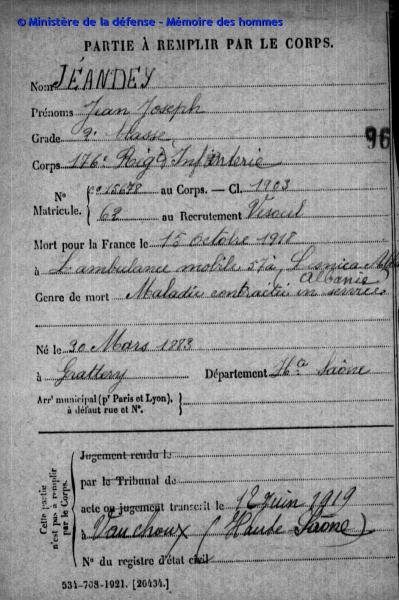 © Ministère de la défense - Mémoire des hommes
PARTIE À REMPLIR PAR LE CORPS.
Nom JÉANDEY
Prénoms Jean Joseph
Grade 2e Classe
96
Corps 176e Régt d'Infanterie
N° Matricule. { no 15678 au Corps. — Cl. 1903
62 au Recrutement Vesoul
Mort pour la France le 15 octobre 1918
à L'ambulance mobile 57 à
Albanie
Genre de mort Maladie contractée en service
Né le 30 Mars 1883
à Grattery Département Hte Saône
Arrt municipal (pr Paris et Lyon), à défaut rue et N°. {
Cette partie n'est pas à remplir par le Corps.
Jugement rendu le
par le Tribunal de
acte ou jugement transcrit le 12 juin 1919
à Vauchoux (Haute Saône)
N° du registre d'état civil
534-708-1921. [26434.]